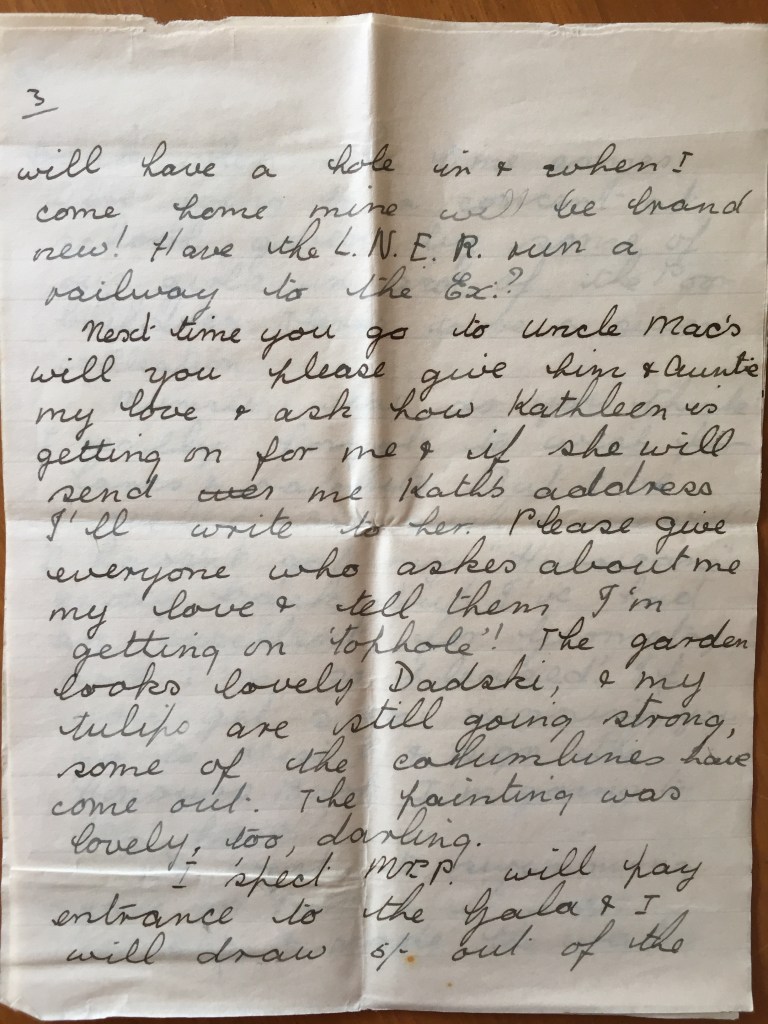 3
will have a hole in & when I
come home mine will be brand
new! Have the L.N.E.R. run a
railway to the Ex.?
Next time you go to Uncle Mac's
will you please give him & Auntie
my love & ask how Kathleen is
getting on for me & if she will
send me Kath's address
I'll write to her. Please give
everyone who askes about me
my love & tell them I'm
getting on 'tophole'! The garden
looks lovely Dadski, & my
tulips are still going strong,
some of the columbines have
come out. The painting was
lovely, too, darling.
I 'spect Mr P. will pay
entrance to the Gala & I
will draw 5/- out of the